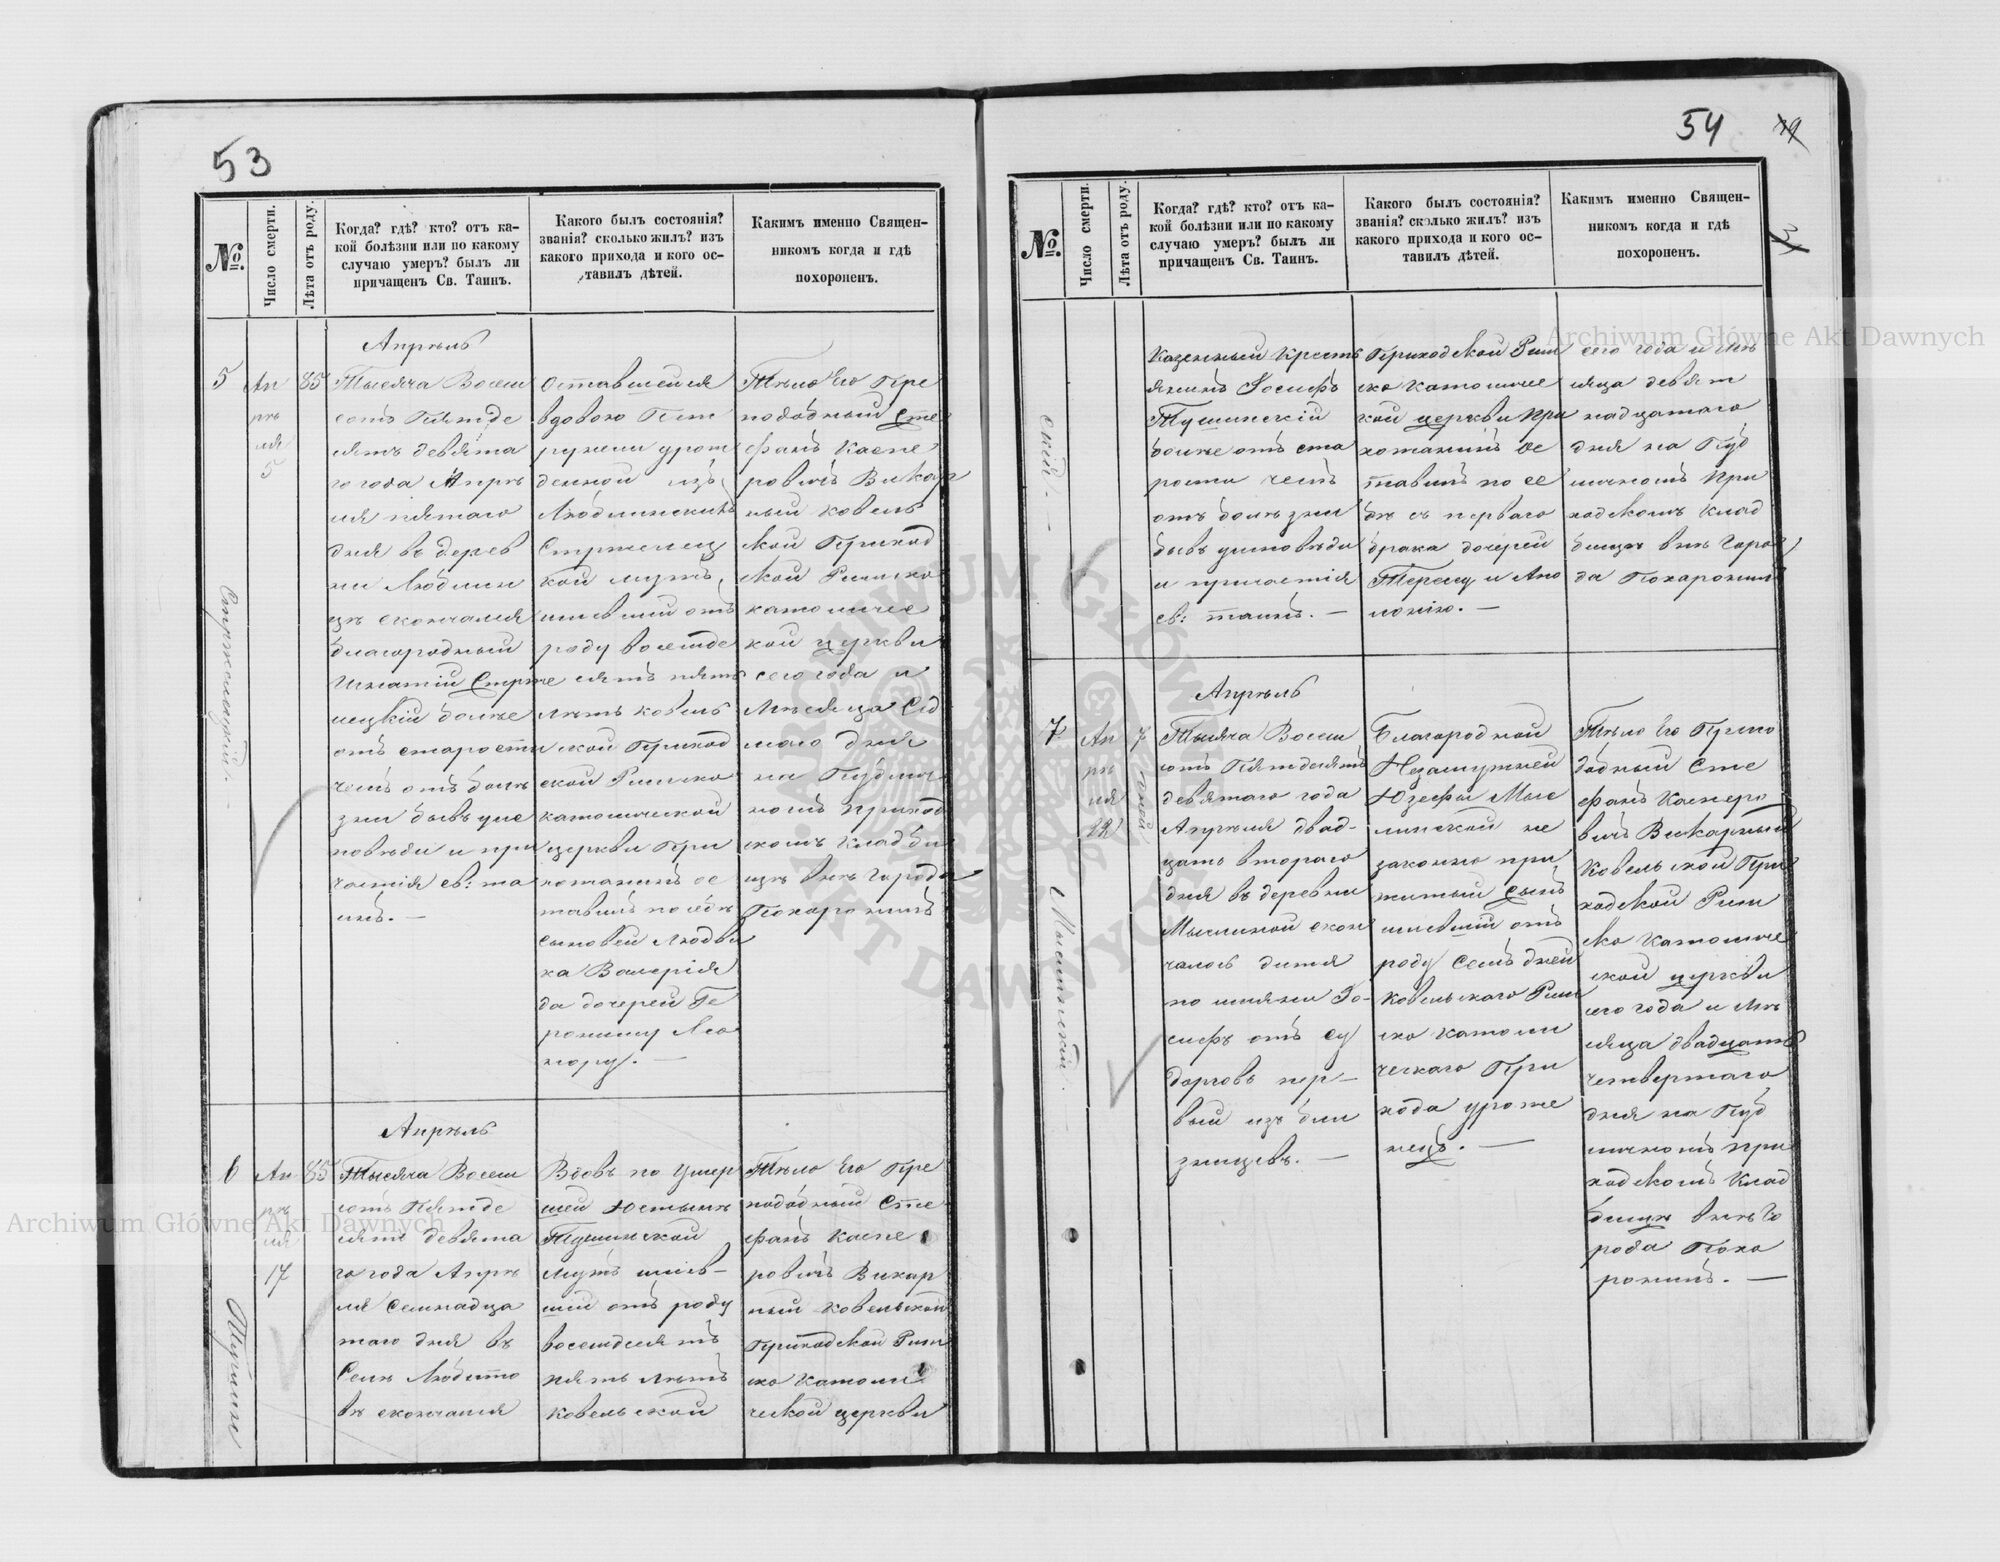 53
№.
Число смерти.
Лѣта отъ роду.
Когда? гдѣ? кто? отъ ка-
кой болѣзни или по какому
случаю умеръ? былъ ли
причащенъ Св. Таинъ.
Какого былъ состоянія?
званія? сколько жилъ? изъ
какого прихода и кого ос-
тавилъ дѣтей.
Каким​ъ именно Священ-
никомъ когда и гдѣ
похороненъ.
5
Ап
рѣ
ля
5
85
Стржелецкій. -
Апрѣль
Тысяча Восем
сотъ Пятде
сятъ девята
го года Апрѣ
ля пятаго
дня въ дерев
ни Люблин
цѣ скончался
благородный
Игнатій Стрже
лецкій болѣе
отъ старости
чемъ отъ болѣ
зни бывъ испо
повѣди и при
частія св: та
инъ. —
Оставшейся
вдовою Пет
рунели урож
денной изъ
Люблинскихъ
Стржелец
кой мужъ,
имевшій отъ
роду восемде
сятъ пять
лѣтъ ковель
ской Приход
ской Римско
католической
церкви При
хожанинъ ос
тавилъ по себѣ
сыновей Людви
ка Валерія
да дочерей Ге
ронимы Лео
нору. —
Тѣло Его Пре
подобный Сте
фанъ Каспе
ровичъ Викар
ный ковель
ской Приход
ской Римско
католичес
кой церкви
сего года и
Мѣсяца Сед
маго дня
на Публич
номъ приход
скомъ кладби
щѣ внѣ города
Похоронилъ
6
Ап
рѣ
ля
17
85
Тушин
Апрѣль
Тысяча Восем
сотъ Пятде
сятъ девята
го года Апрѣ
ля Семнадца
таго дня въ
Селѣ Любито
вѣ скончался
Вдовъ по умер
шей Юстынѣ
Тушинской
мужъ имев-
шій отъ роду
восемдесятъ
пять лѣтъ
ковельской
Тѣло Его Пре
подобный Сте-
фанъ Каспе
ровичъ Викар
ный ковельской
Приходской Рим
ско Католи
ческой церкви
54
29
31
№.
Число смерти.
Лѣта отъ роду.
Когда? гдѣ? кто? отъ ка-
кой болѣзни или по какому
случаю умеръ? былъ ли
причащенъ Св. Таинъ.
Какого былъ состоянія?
званія? сколько жилъ? изъ
какого прихода и кого ос-
тавилъ дѣтей.
Каким​ъ именно Священ-
никомъ когда и гдѣ
похороненъ.
скій. -
Казенный Крестъ
янинъ Іосифъ
Тушинскій
болѣе отъ ста
рости чемъ
отъ болѣзни
бывъ исповѣди
и причастія
св: таинъ. —
Приходской Рим
ско католичес
кой церкви При
хожанинъ Ос
тавилъ по се
бѣ съ перваго
брака дочерей
Терезу и Апо
лонію. —
сего года и мѣ
сяца девят
надцатаго
дня на Пуб
личномъ При
ходскомъ Клад
бищѣ внѣ Горо
да Похоронилъ
7
Ап
рѣ
ля
22
7 дней
Мыслинскій. -
Апрѣль
Тысяча Восем
сотъ Пятдесятъ
девятаго года
Апрѣля двад-
цать втораго
дня въ деревни
Мыслиной скон
чалось дитя
по имяни Іо-
сифъ отъ су
дорговъ пер-
вый изъ бли
знецевъ. —
Благородной
Незамужней
Юзефы Мыс
линской не
законно при
житый сынъ
имевшій отъ
роду Семъ дней
Ковельскаго Рим
ско католи
ческаго При
хода уроже
нецъ. —
Тѣло Его Препо
добный Сте
фанъ Каспро
вичъ Викарный
Ковельской При
ходской Рим
ско Католиче
ской церкви
сего года и мѣ
сяца двадцать
четвертаго
дня на Пуб
личномъ при
ходскомъ Клад
бищѣ внѣ Го
рода Похо
ронилъ. —
Archiwum Główne Akt Dawnych
Archiwum Główne Akt Dawnych
ARCHIWUM GŁÓWNE AKT DAWNYCH